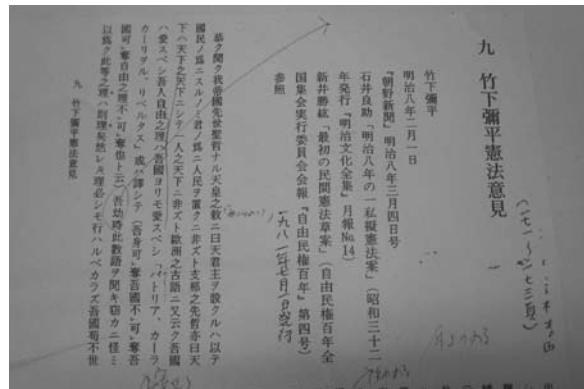 九　竹下彌平憲法意見
竹下彌平
明治八年二月一日
『朝野新聞』明治八年三月四日号
石井良助「明治八年の一私擬憲法案」（昭和三十二
年発行『明治文化全集』月報No.14）
新井勝紘「最初の民間憲法草案」（自由民権百年全
国集会実行委員会会報『自由民権百年』第四号）
一九八一年七月一日発行
参照
恭ク聞ク我帝国先世聖哲ナル天皇之敕ニ曰天君主ヲ設クルハ以テ
国民ノ為ニスルノミ君ノ為ニ人民ヲ置クニ非ズト支那之先哲亦曰天
下ハ天下之天下ニシテ一人之天下ニ非ズト欧洲之古語ニ又云ク吾國
ハ愛スベシ吾人自由之理ハ吾國ヨリモ愛スベシ「パトリア、カーラ
カーリヲル、リベルタス」或ハ譯シテ（吾身可奪吾國不可奪吾
國可奪自由之理不可奪也ト云）吾幼時此數語ヲ聞キ窃カニ怪ミ
以為ク此等之理ハ則理矣然レ𪜈理必シモ行ハルベカラズ吾國苟不世
九　竹下彌平憲法意見